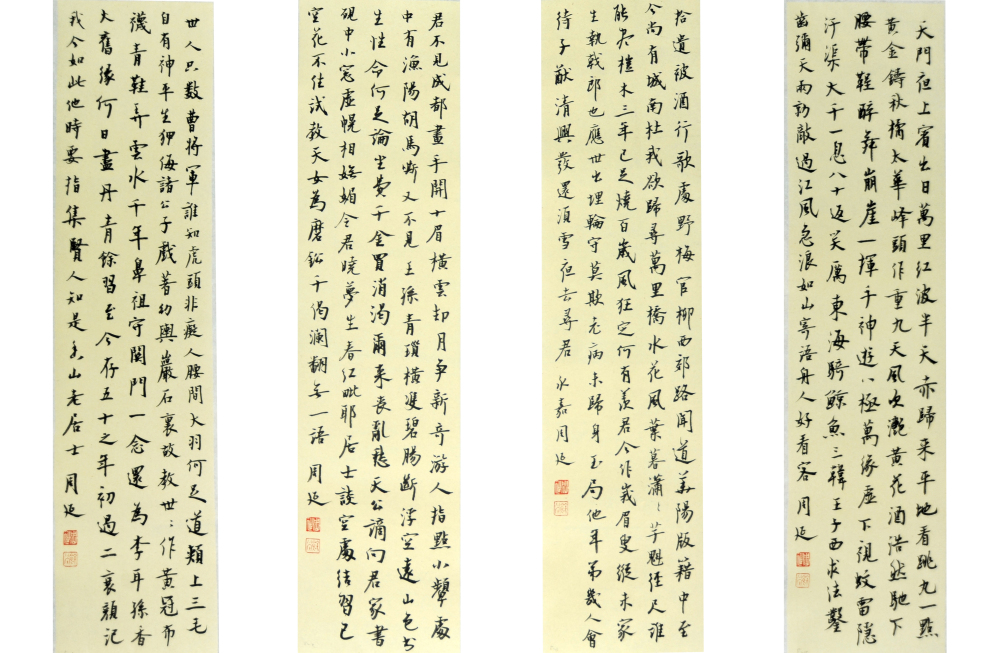 天門夜上賓出日萬里紅波半天赤歸來平地看跳丸一點
黃金鑄秋橘太華峰頭作重九天風吹灩黃花酒浩然馳下
腰帶鞓醉舞崩崖一揮手神遊八極萬緣虛下視蚊雷隱
汙渠大千一息八十返笑厲東海騎鯨魚三韓王子西求法鑿
齒彌天兩勍敵過江風急浪如山寄語舟人好看客 周延
拾遺被酒行歌處野梅官柳西郊路聞道華陽版籍中至
今尚有城南杜我欲歸尋萬里橋水花風葉暮瀟〻芋魁徑尺誰
能盡榿木三年已足燒百歲風狂定何有羨君今作峩眉叟縱未家
生執戟郎也應世出埋輪守莫欺老病未歸身玉局他年第幾人會
待子猷清興發還須雪夜去尋君 永嘉周延
君不見成都畫手開十眉橫雲却月爭新奇游人指點小顰處
中有漁陽胡馬嘶又不見王孫青瑣橫雙碧腸斷浮空遠山色書
生性命何足論坐費千金買消渴爾來喪亂愁天公謫向君家書
硯中小窓虛幌相嫵媚令君曉夢生春紅毗耶居士談空處結習已
空花不住試教天女為磨鉛千偈瀾翻無一語 周延
世人只數曹將軍誰知虎頭非癡人腰間大羽何足道頰上三毛
自有神平生狎侮諸公子戲著幼輿巖石裏故教世〻作黃冠布
襪青鞋弄雲水千年鼻祖守關門一念還為李耳孫香
火舊緣何日盡丹青餘習至今存五十之年初過二衰顏記
我今如此他時要指集賢人知是香山老居士 周延